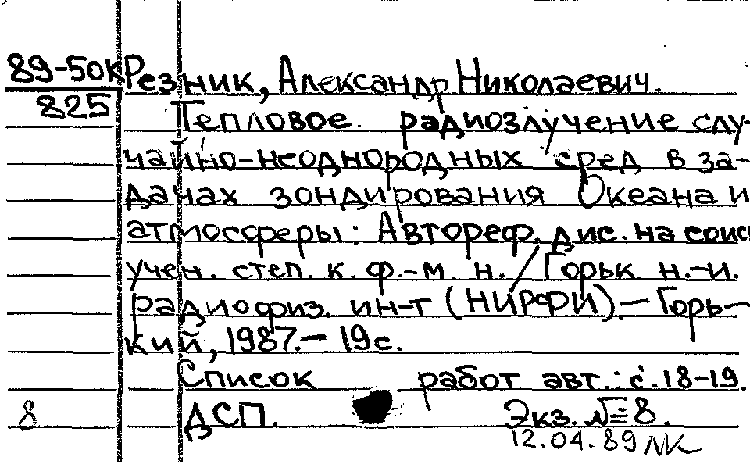 89-50к Резник, Александр Николаевич.
825
Тепловое радиозлучение слу-
чайно-неоднородных сред в за-
дачах зондирования Океана и
атмосферы: Автореф. дис. на соиск
учен. степ. к. ф.-м. н. / Горьк н.-и.
радиофиз. ин-т (НИРФИ).— Горь-
кий, 1987.— 19с.
Список работ авт.: с.18-19.
8 ДСП. Экз. №8.
12.04.89